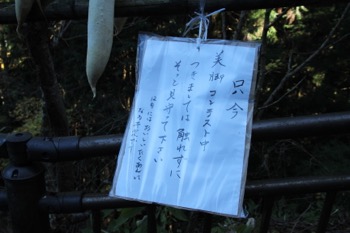 只今
美脚コンテスト中
つきましては触れずに
そっと見守って下さい